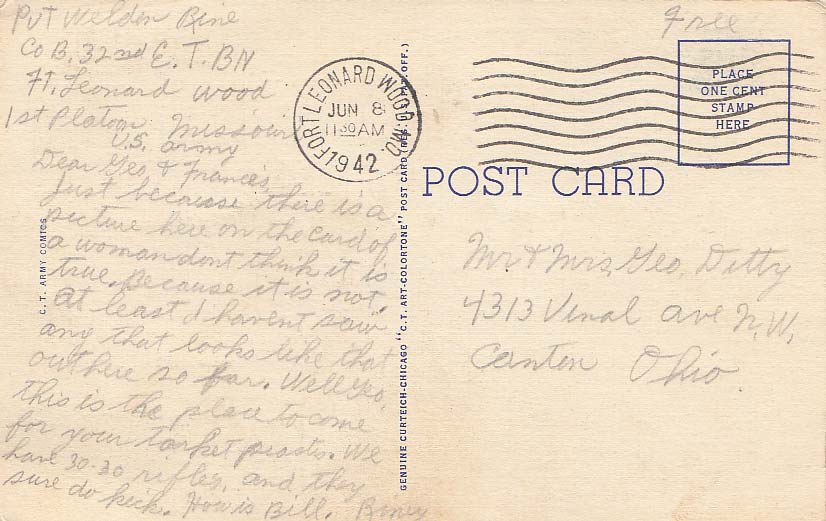 Pvt Welden Rine
Co B. 32nd E. T. BN
Ft. Leonard Wood
1st Platoon Missouri
U.S. Army
Dear Geo, & Frances,
Just because there is a
picture here on the card of
a woman dont think it is
true. Because it is not.
At least I havent saw
any that looks like that
out here so far. Well Geo,
this is the place to come
for your target
We
have 30-30 rifles, and they
sure do kick. How is Bill.
C. T. ARMY COMICS
GENUINE CURTEICH-CHICAGO "C. T. ART-COLORTONE" POST CARD (REG. U.S. PAT. OFF.)
FORT LEONARD WOOD, MO.
JUN 8
11 30 AM
1942
Free
PLACE
ONE CENT
STAMP
HERE
POST CARD
Mr & Mrs, Geo, Ditty
4313 Vinal ave N.W,
Canton Ohio.